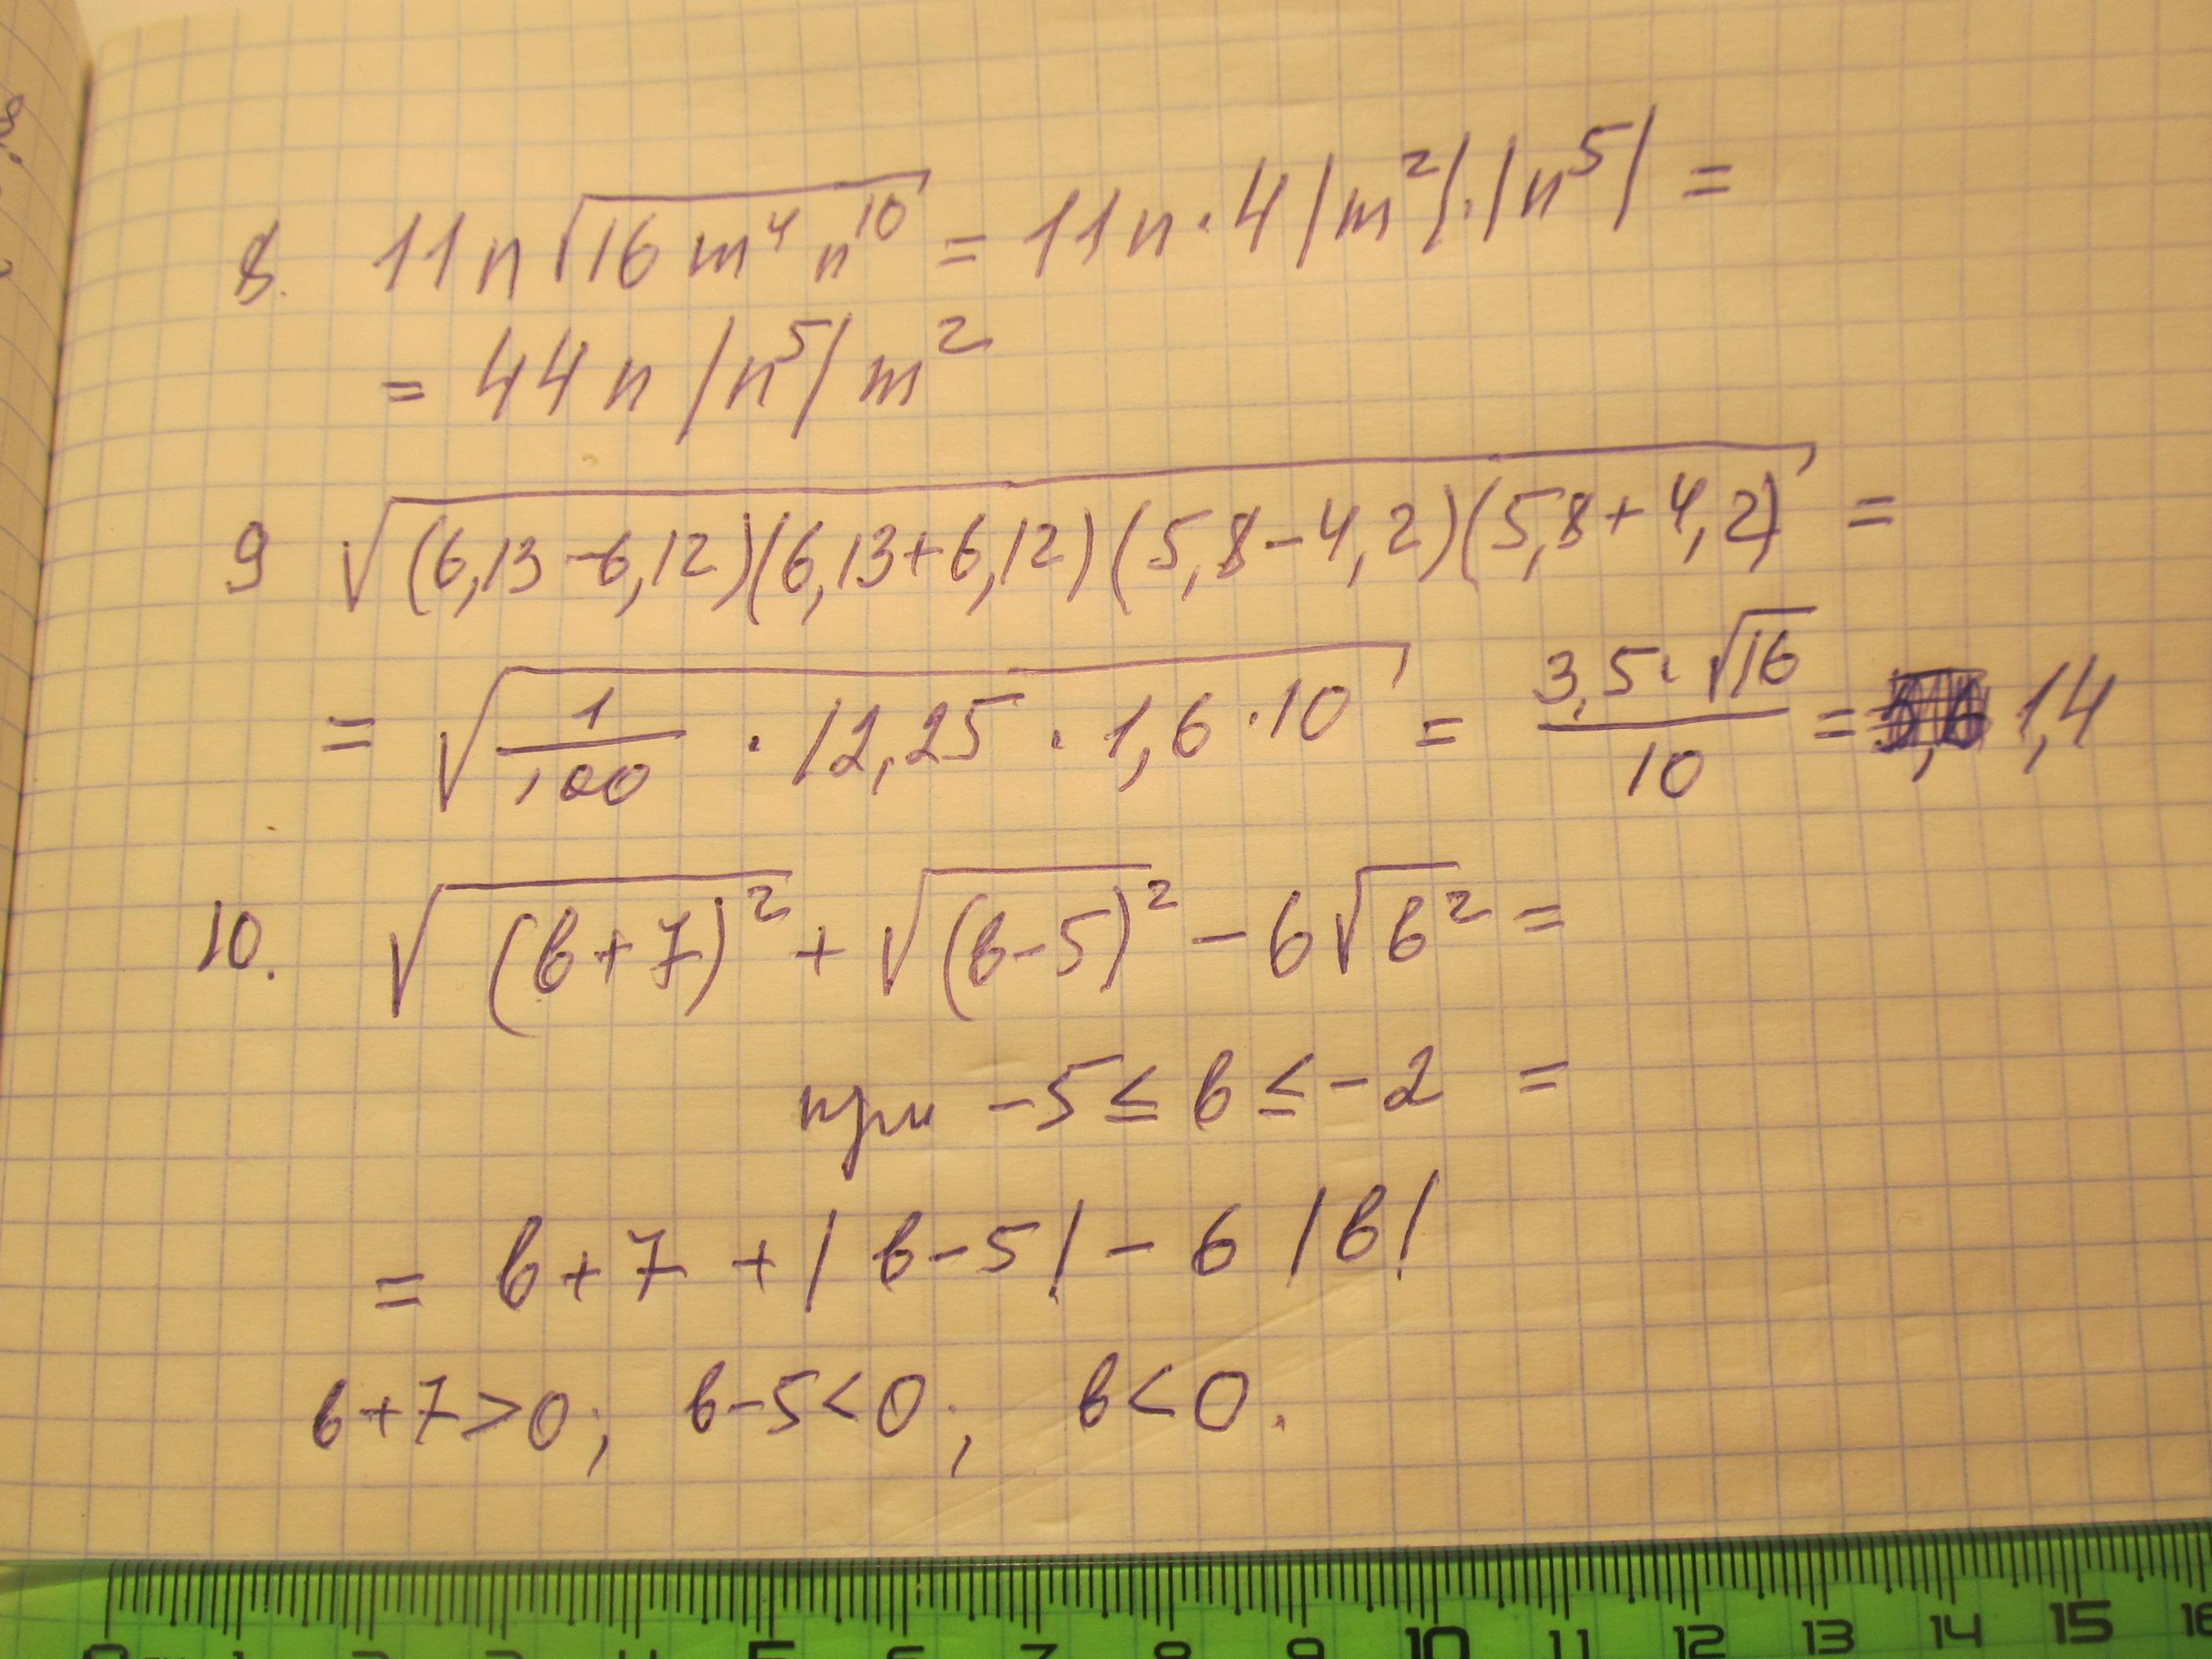 8. 11n√(16 m⁴ n¹⁰) = 11n · 4 |m²| · |n⁵| =
= 44 n |n⁵| m²
9 √((6,13 - 6,12)(6,13 + 6,12)(5,8 - 4,2)(5,8 + 4,2)) =
= √(1/100 · 12,25 · 1,6 · 10) = (3,5 · √16)/10 = 1,4
10. √((в+7)²) + √((в-5)²) - 6√(в²) =
при -5 ≤ в ≤ -2 =
= в+7 + |в-5| - 6 |в|
в+7>0; в-5<0; в<0.
0 1 2 3 4 5 6 7 8 9 10 11 12 13 14 15 16